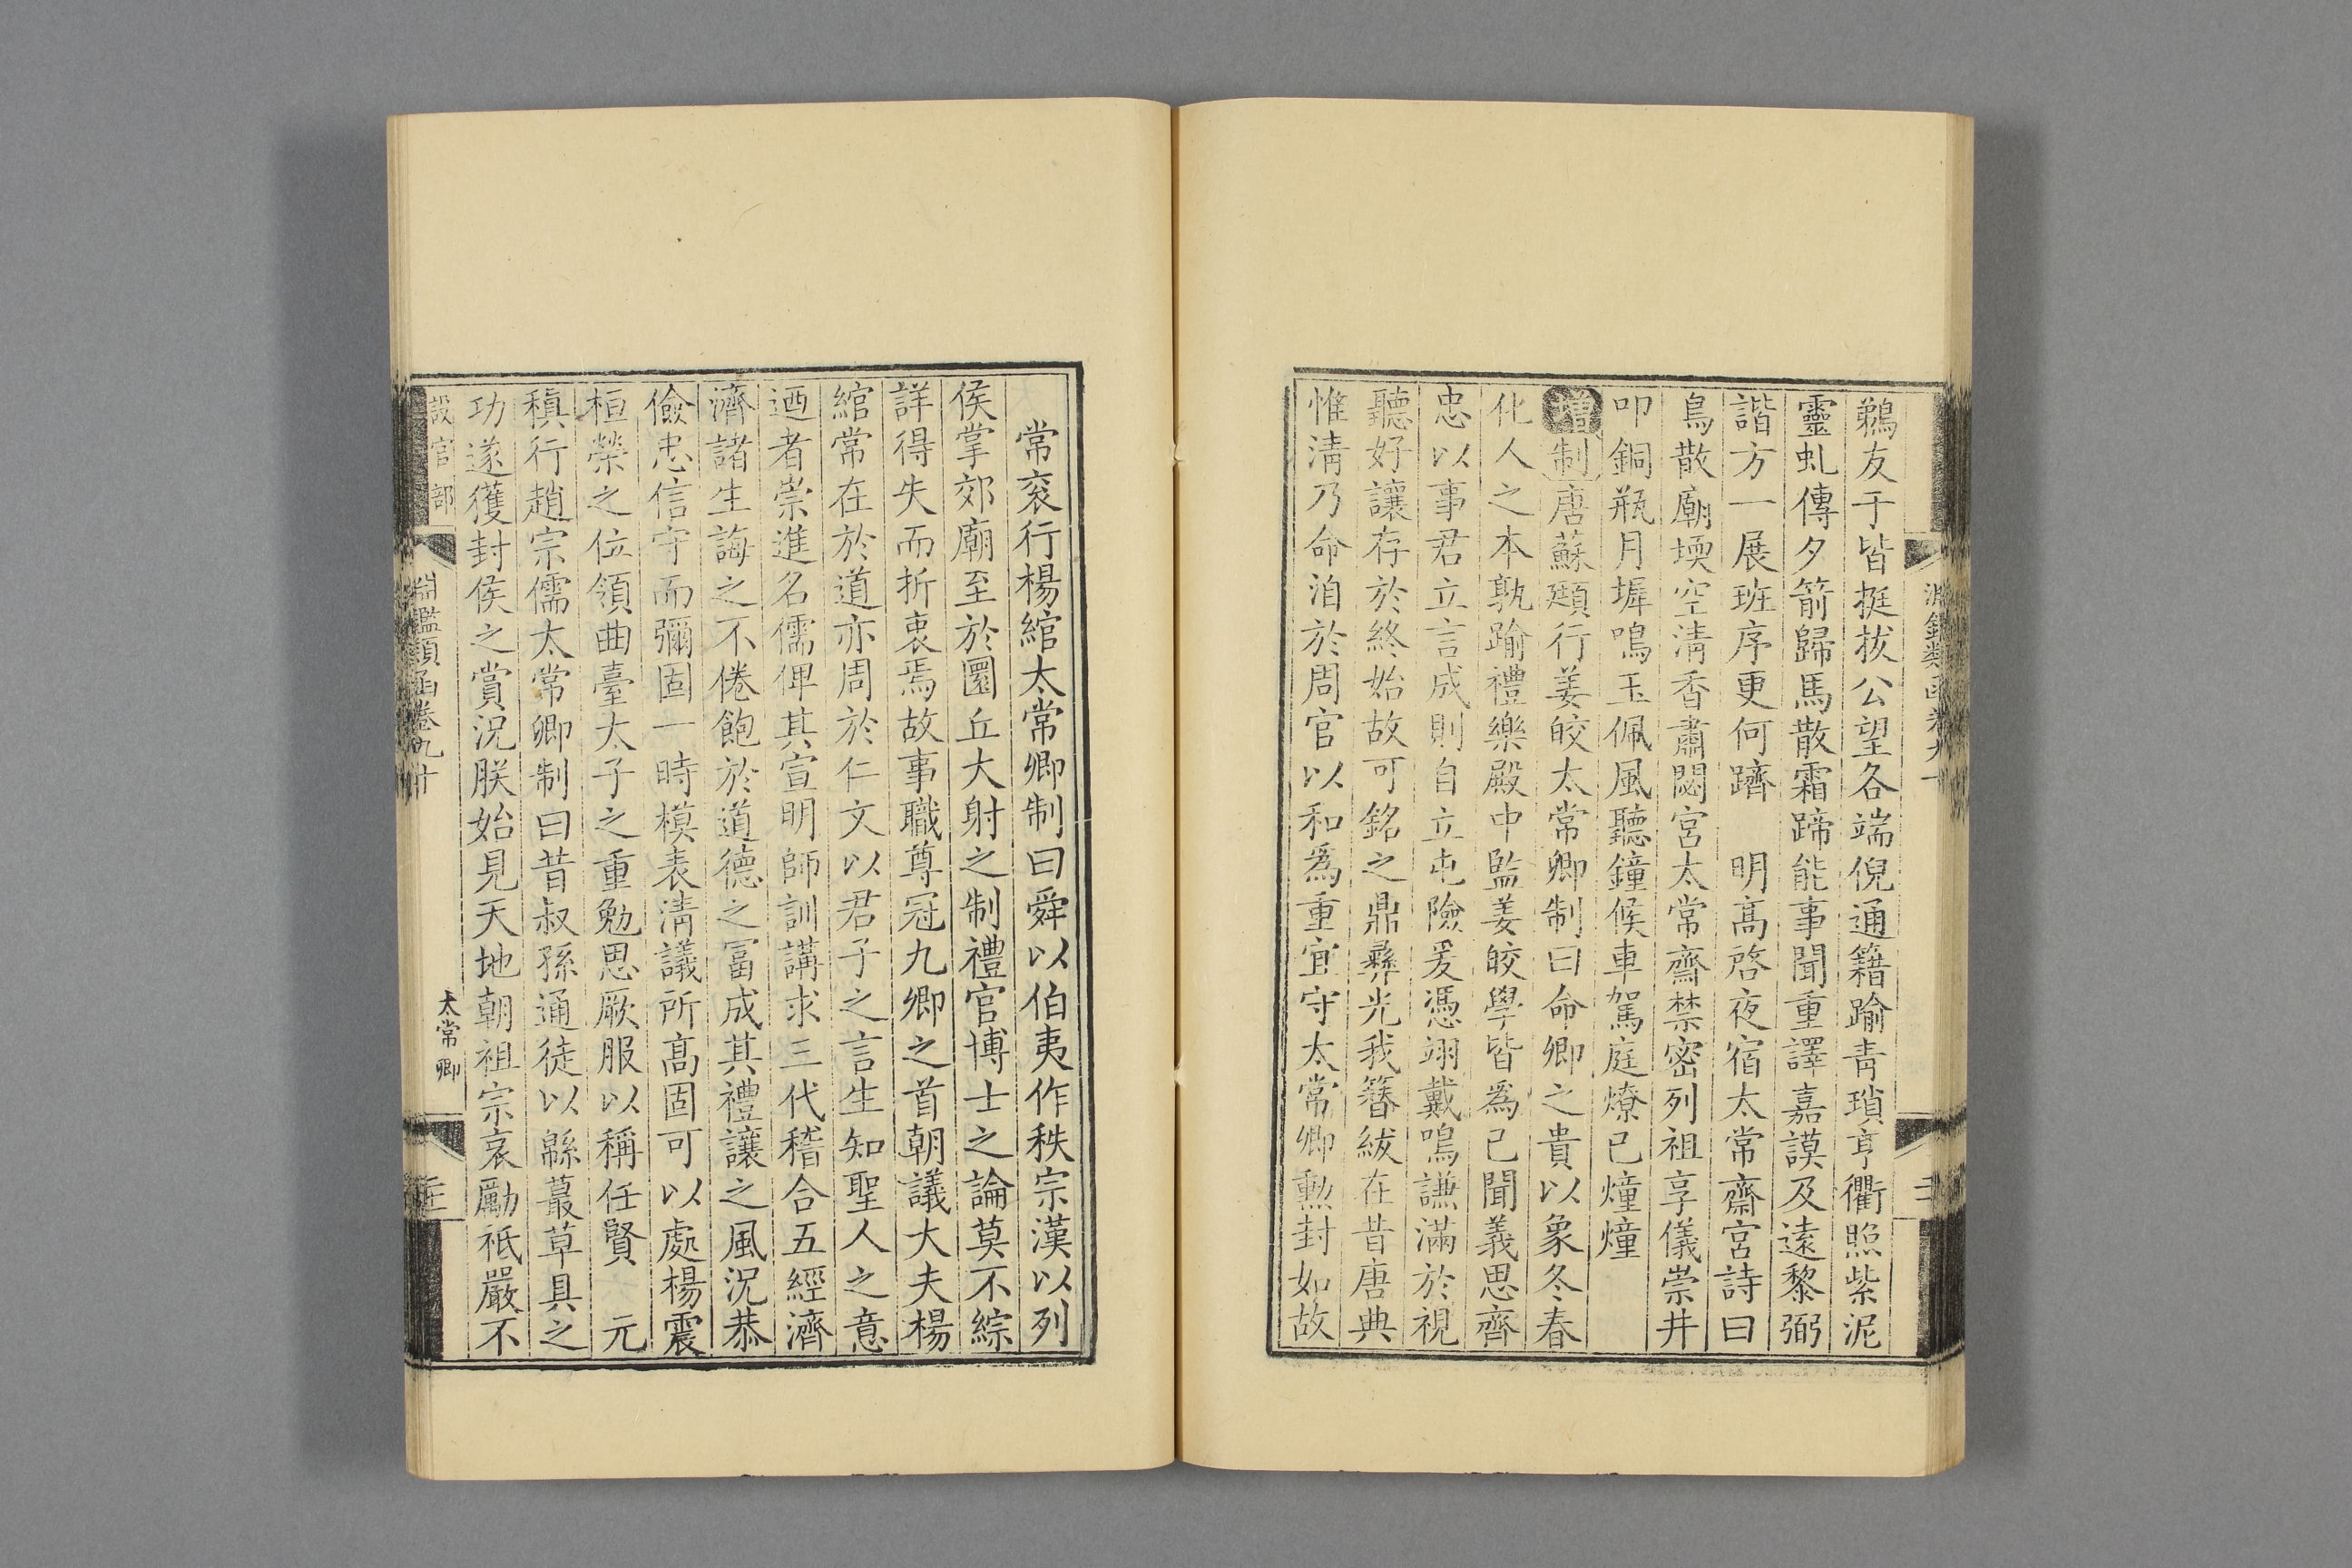 鵜友于皆挺拔公望各端倪通籍踰靑瑣亨衢照紫泥
靈虬傳夕箭歸馬散霜蹄能事聞重譯嘉謨及遠黎弼
諧方一展班序更何躋　明高啓夜宿太常齋宮詩曰
鳥散廟堧空淸香肅閟宮太常齋禁密列祖享儀崇井
叩銅瓶月墀鳴玉佩風聽鐘候車駕庭燎已爞爞
增制唐蘇頲行姜皎太常卿制曰命卿之貴以象冬春
化人之本孰踰禮樂殿中監姜皎學皆爲已聞義思齊
忠以事君立言成則自立屯險爰憑翊戴鳴謙滿於視
聽好讓存於終始故可銘之鼎彝光我簪紱在昔唐典
惟淸乃命洎於周官以和爲重宜守太常卿勲封如故
常衮行楊綰太常卿制曰舜以伯夷作秩宗漢以列
侯掌郊廟至於圜丘大射之制禮官博士之論莫不綜
詳得失而折衷焉故事職尊冠九卿之首朝議大夫楊
綰常在於道亦周於仁文以君子之言生知聖人之意
迺者崇進名儒俾其宣明師訓講求三代稽合五經濟
濟諸生誨之不倦飽於道德之富成其禮讓之風況恭
儉忠信守而彌固一時模表淸議所高固可以處楊震
桓榮之位領曲臺太子之重勉思厥服以稱任賢　元
稹行趙宗儒太常卿制曰昔叔孫通徒以緜蕞草具之
功遂獲封侯之賞況朕始見天地朝祖宗哀勵祗嚴不
設官部
淵鑑類函卷九十
太常卿